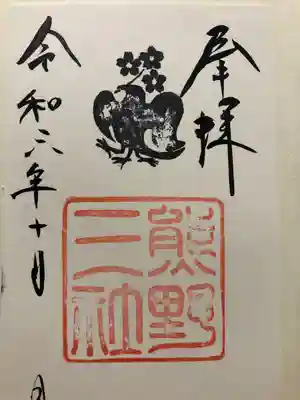 奉拝
熊野
三社
令和六年十月
月